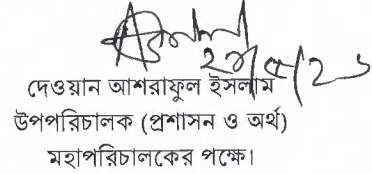 দেওয়ান আশরাফুল ইসলাম
উপপরিচালক (প্রশাসন ও অর্থ)
মহাপরিচালকের পক্ষে।